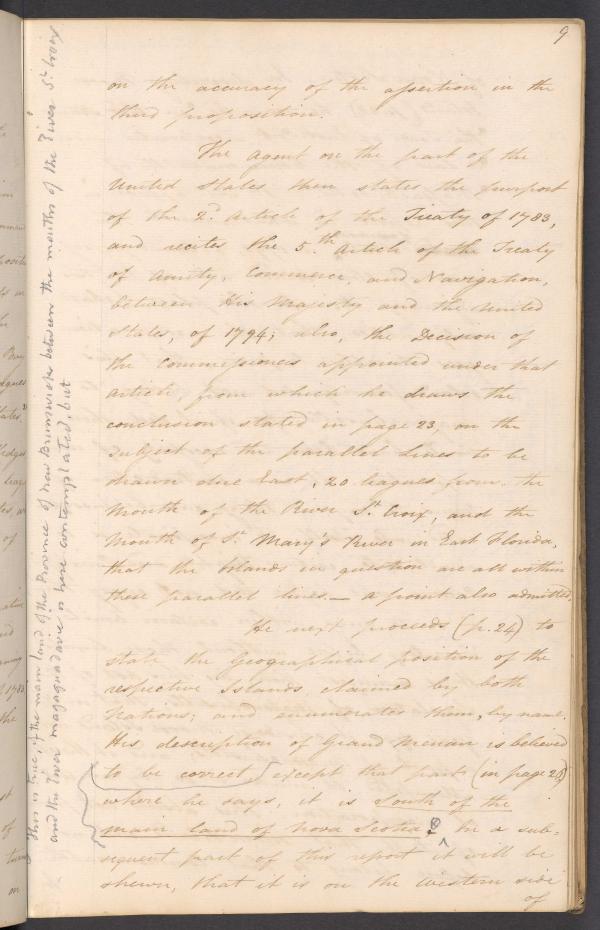 9
on the accuracy of the assertion in the
third proposition.
The Agent on the part of the
United States then states the purport
of the 2d. Article of the Treaty of 1783,
and recites the 5th Article of the Treaty
of Amity, Commerce, and Navigation,
between His Majesty and the United
States, of 1794; also, the Decision of
the Commissioners appointed under that
Article, from which he draws the
conclusion stated in page 23, on the
subject of the parallel Lines to be
drawn due East, 20 leagues from the
Mouth of the River St. Croix, and the
Mouth of St. Mary's River in East Florida,
that the Islands in question are all within
these parallel lines. — a point also admitted.
He next proceeds (p. 24) to
state the Geographical position of the
respective Islands claimed by both
Nations; and enumerates them, by name.
His description of Grand Menan is believed
to be correct, except that part (in page 26)
where he says, it is South of the
main land of Nova Scotia. In a sub-
sequent part of this report it will be
shewn, that it is on the western side
of
This is true, if the main land of the Province of New Brunswick between the mouths of the River St. Croix
and the River Magaguadavic is here contemplated, but